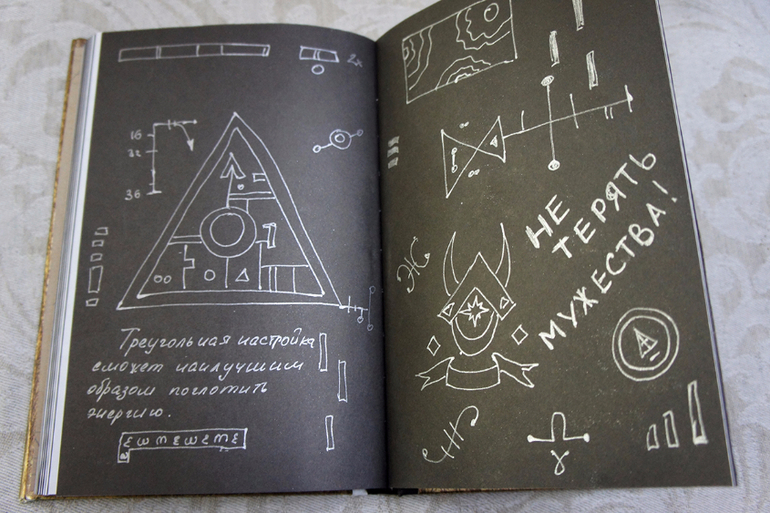 2x
16
32
36
Треугольная настройка
сможет наилучшим
образом поглотить
энергию.
НЕ
ТЕРЯТЬ
МУЖЕСТВА!